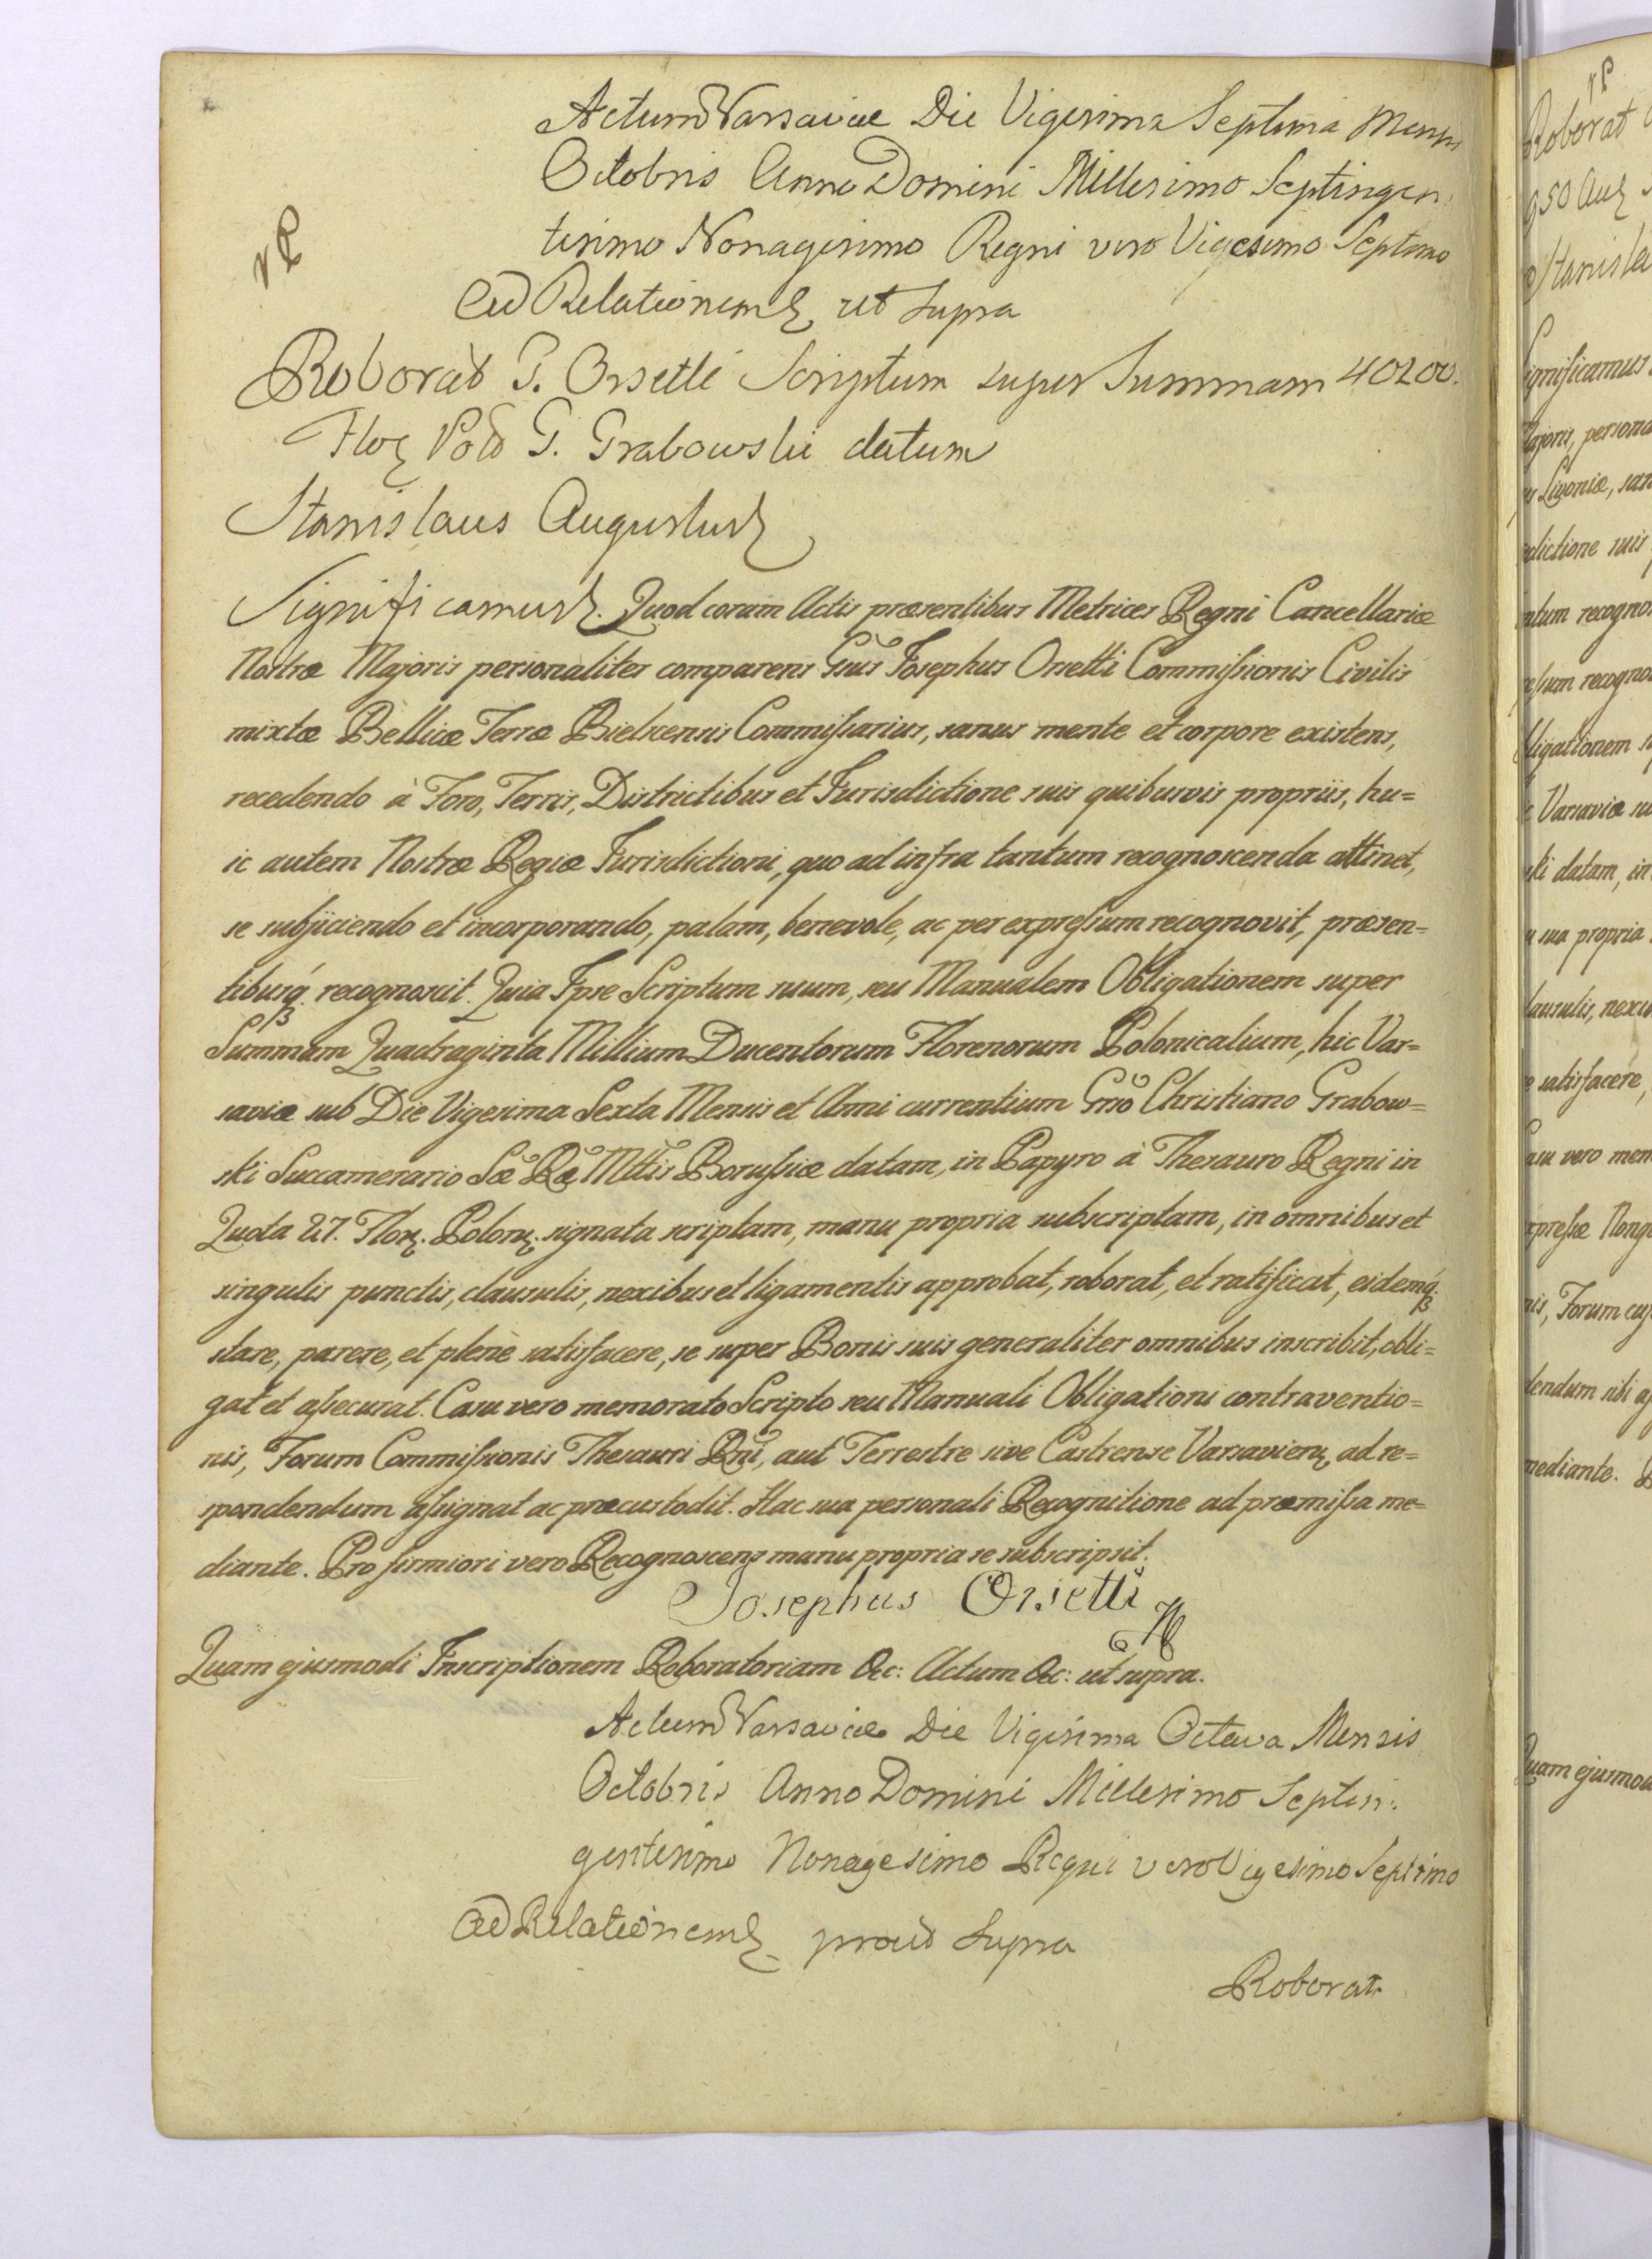 Actum Varsaviae Die Vigesima Septima Mensis
Octobris Anno Domini Millesimo Septingen-
tesimo Nonagesimo Regni vero Vigesimo Septimo
Ad Relationem ut supra
Roborat G. Orsetti Scriptum super Summam 40200.
Flor Pol G. Grabowski datum
Stanislaus Augustus
Significamus. Quod coram Actis præsentibus Metrices Regni Cancellariæ
Nostræ Majoris personaliter comparens Gsus Josephus Orsetti Commissionis Civilis
mixtæ Bellicæ Terræ Bielscensis Commissarius, sanus mente et corpore existens,
recedendo à Foro, Terris, Districtibus et Jurisdictione suis quibusvis propriis, hu=
ic autem Nostræ Regiæ Jurisdictioni, quo ad infra tantum recognoscenda attinet,
se subjiciendo et incorporando, palam, benevole, ac per expressum recognovit, præsen=
tibusq. recognoscit. Quia Ipse Scriptum suum, seu Manualem Obligationem super
Summam Quadraginta Millium Ducentorum Florenorum Polonicalium, hic Var=
saviæ sub Die Vigesima Sexta Mensis et Anni currentium Gsso Christiano Grabow=
ski Succamerario Sæ Ræ Mttis Borussiæ datam, in Papyro à Thesauro Regni in
Quota 27. Flor. Polon. signata scriptam, manu propria subscriptam, in omnibus et
singulis punctis, clausulis, nexibus et ligamentis approbat, roborat, et ratificat, eidemq.
stare, parere, et plenè satisfacere, se super Bonis suis generaliter omnibus inscribit, obli=
gat et assecurat. Casu vero memorato Scripto seu Manuali Obligationi contraventio=
nis, Forum Commissionis Thesauri Rni, aut Terrestre sive Castrense Varsavien, ad re=
spondendum assignat ac præcustodit. Hac sua personali Recognitione ad præmissa me=
diante. Pro firmiori vero Recognoscens manu propria se subscripsit.
Josephus Orsetti
Quam ejusmodi Inscriptionem Roboratoriam &c: Actum &c: ut supra.
Actum Varsaviae Die Vigesima Octava Mensis
Octobris Anno Domini Millesimo Septin-
gentesimo Nonagesimo Regni vero Vigesimo Septimo
Ad Relationem prout supra
Roborat